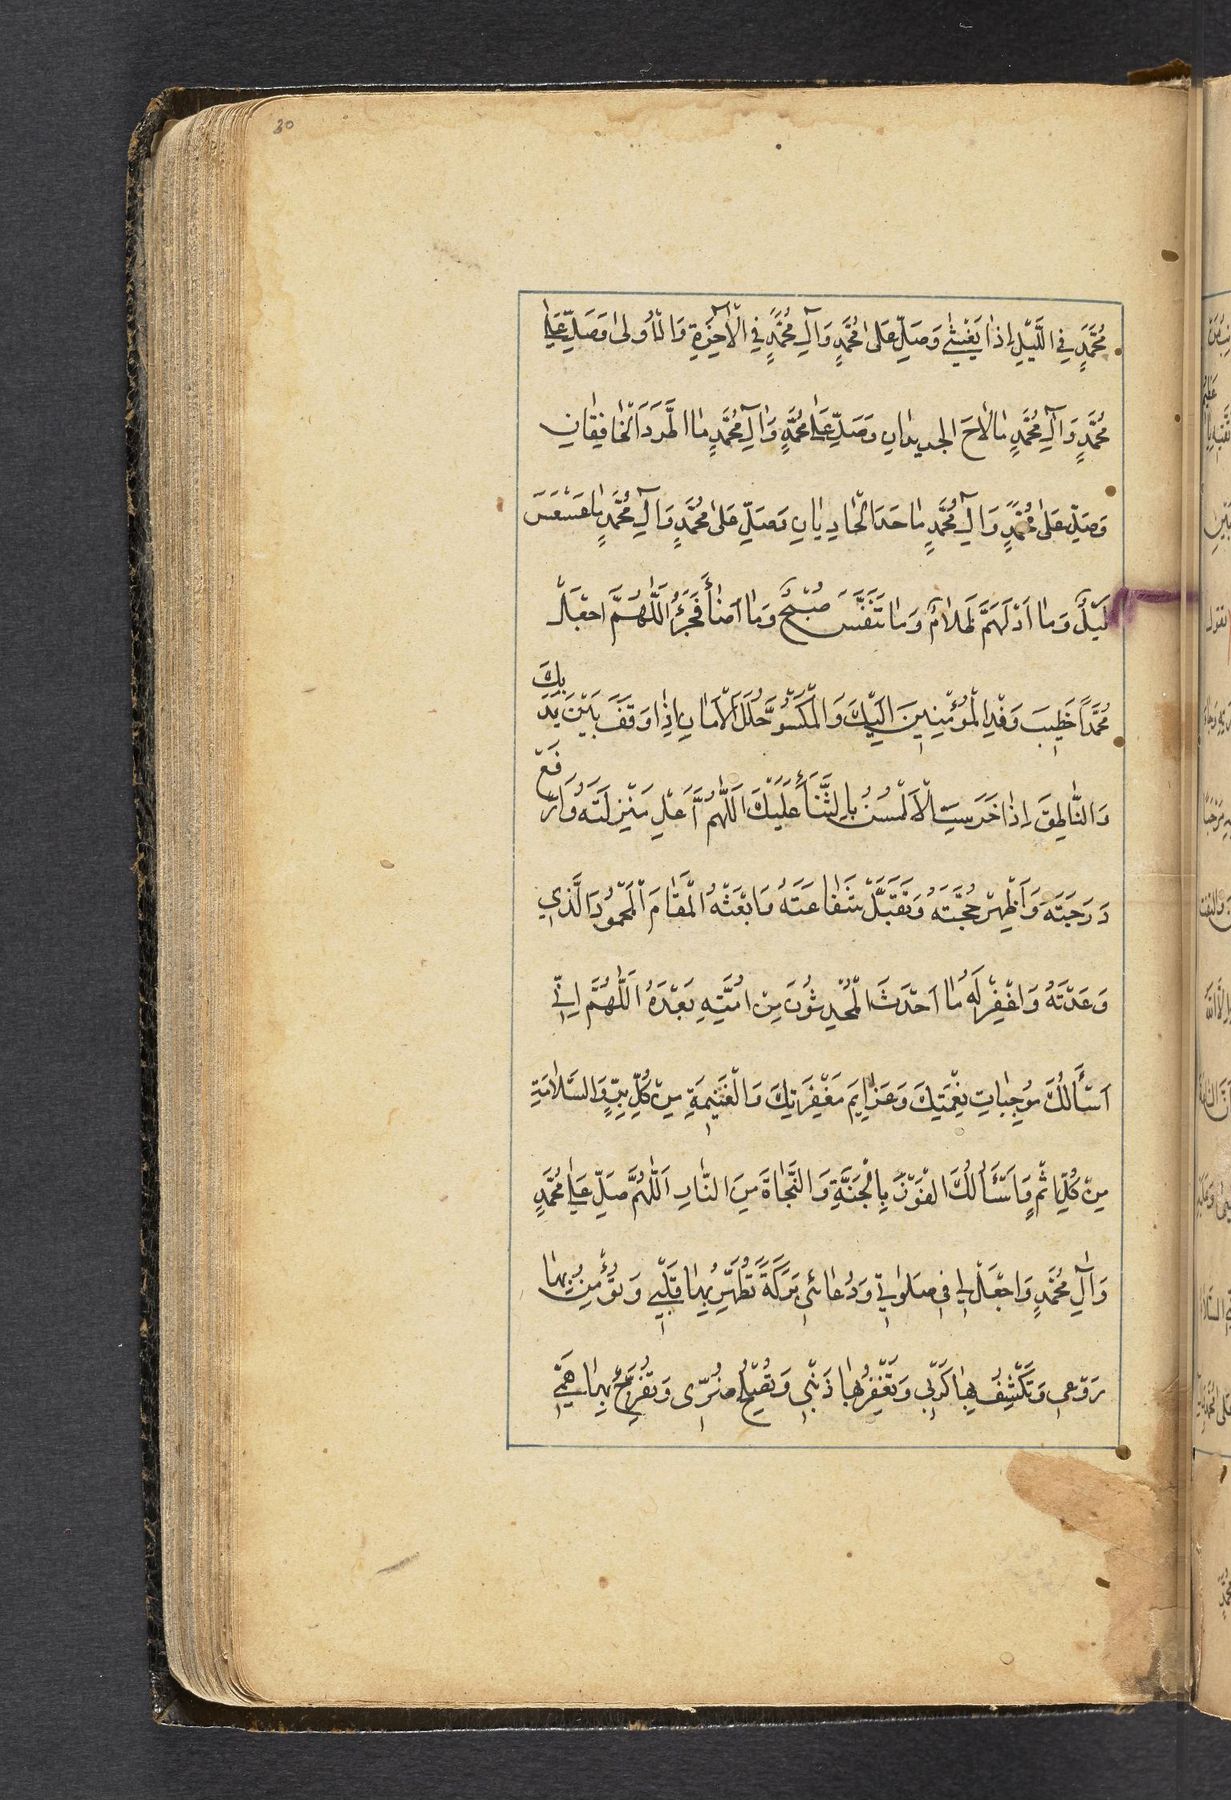 30
مُحَمَّدٍ فِي اللَّيْلِ اِذَا يَغْشىٰ وَصَلِّ عَلىٰ مُحَمَّدٍ وَآلِ مُحَمَّدٍ فِي الْآخِرَةِ وَالْأُولىٰ وَصَلِّ عَلىٰ
مُحَمَّدٍ وَآلِ مُحَمَّدٍ مَا لَاحَ الجديدانِ وَصَلِّ عَلىٰ مُحَمَّدٍ وَآلِ مُحَمَّدٍ مَا اطَّرَدَ الْخَافِقَانِ
وَصَلِّ عَلىٰ مُحَمَّدٍ وَآلِ مُحَمَّدٍ مَا حَدَا الْحَادِيَانِ وَصَلِّ عَلىٰ مُحَمَّدٍ وَآلِ مُحَمَّدٍ مَا عَسْعَسَ
لَيْلٌ وَمَا ادْلَهَمَّ ظَلَامٌ وَمَا تَنَفَّسَ صُبْحٌ وَمَا اَضَاءَ فَجْرٌ اَللّٰهُمَّ اجْعَلْ
مُحَمَّدًا خَطِيبَ وَفْدِ الْمُؤْمِنِينَ اِلَيْكَ وَالْمَكْسُوَّ حُلَلَ الْاَمَانِ اِذَا وَقَفَ بَيْنَ يَدَيْكَ
وَالنَّاطِقَ اِذَا خَرَسَتِ الْاَلْسُنُ بِالثَّنَاءِ عَلَيْكَ اَللّٰهُمَّ اَعْلِ مَنْزِلَتَهُ وَارْفَعْ
دَرَجَتَهُ وَاَظْهِرْ حُجَّتَهُ وَتَقَبَّلْ شَفَاعَتَهُ وَابْعَثْهُ الْمَقَامَ الْمَحْمُودَ الَّذِي
وَعَدْتَهُ وَاغْفِرْ لَهُ مَا اَحْدَثَ الْمُحْدِثُونَ مِنْ اُمَّتِهِ بَعْدَهُ اَللّٰهُمَّ اِنِّي
اَسْأَلُكَ مُوجِبَاتِ نِعْمَتِكَ وَعَزَايِمَ مَغْفِرَتِكَ وَالْغَنِيمَةِ مِنْ كُلِّ بِرٍّ وَالسَّلَامَةِ
مِنْ كُلِّ اِثْمٍ وَاَسْأَلُكَ الْفَوْزَ بِالْجَنَّةِ وَالنَّجَاةَ مِنَ النَّارِ اَللّٰهُمَّ صَلِّ عَلىٰ مُحَمَّدٍ
وَآلِ مُحَمَّدٍ وَاجْعَلْ لِي فى صَلَوٰتِي وَدُعَائى بَرَكَةً تُطَهِّرُ بِهَا قَلْبِي وَتُؤْمِنُ بِهَا
رَوْعِي وَتَكْشِفُ بِهَا كَرْبِي وَتَغْفِرُ بِهَا ذَنْبِي وَتُصْلِحُ ضُرّى وَتُفَرِّجُ بِهَا هَمِّي